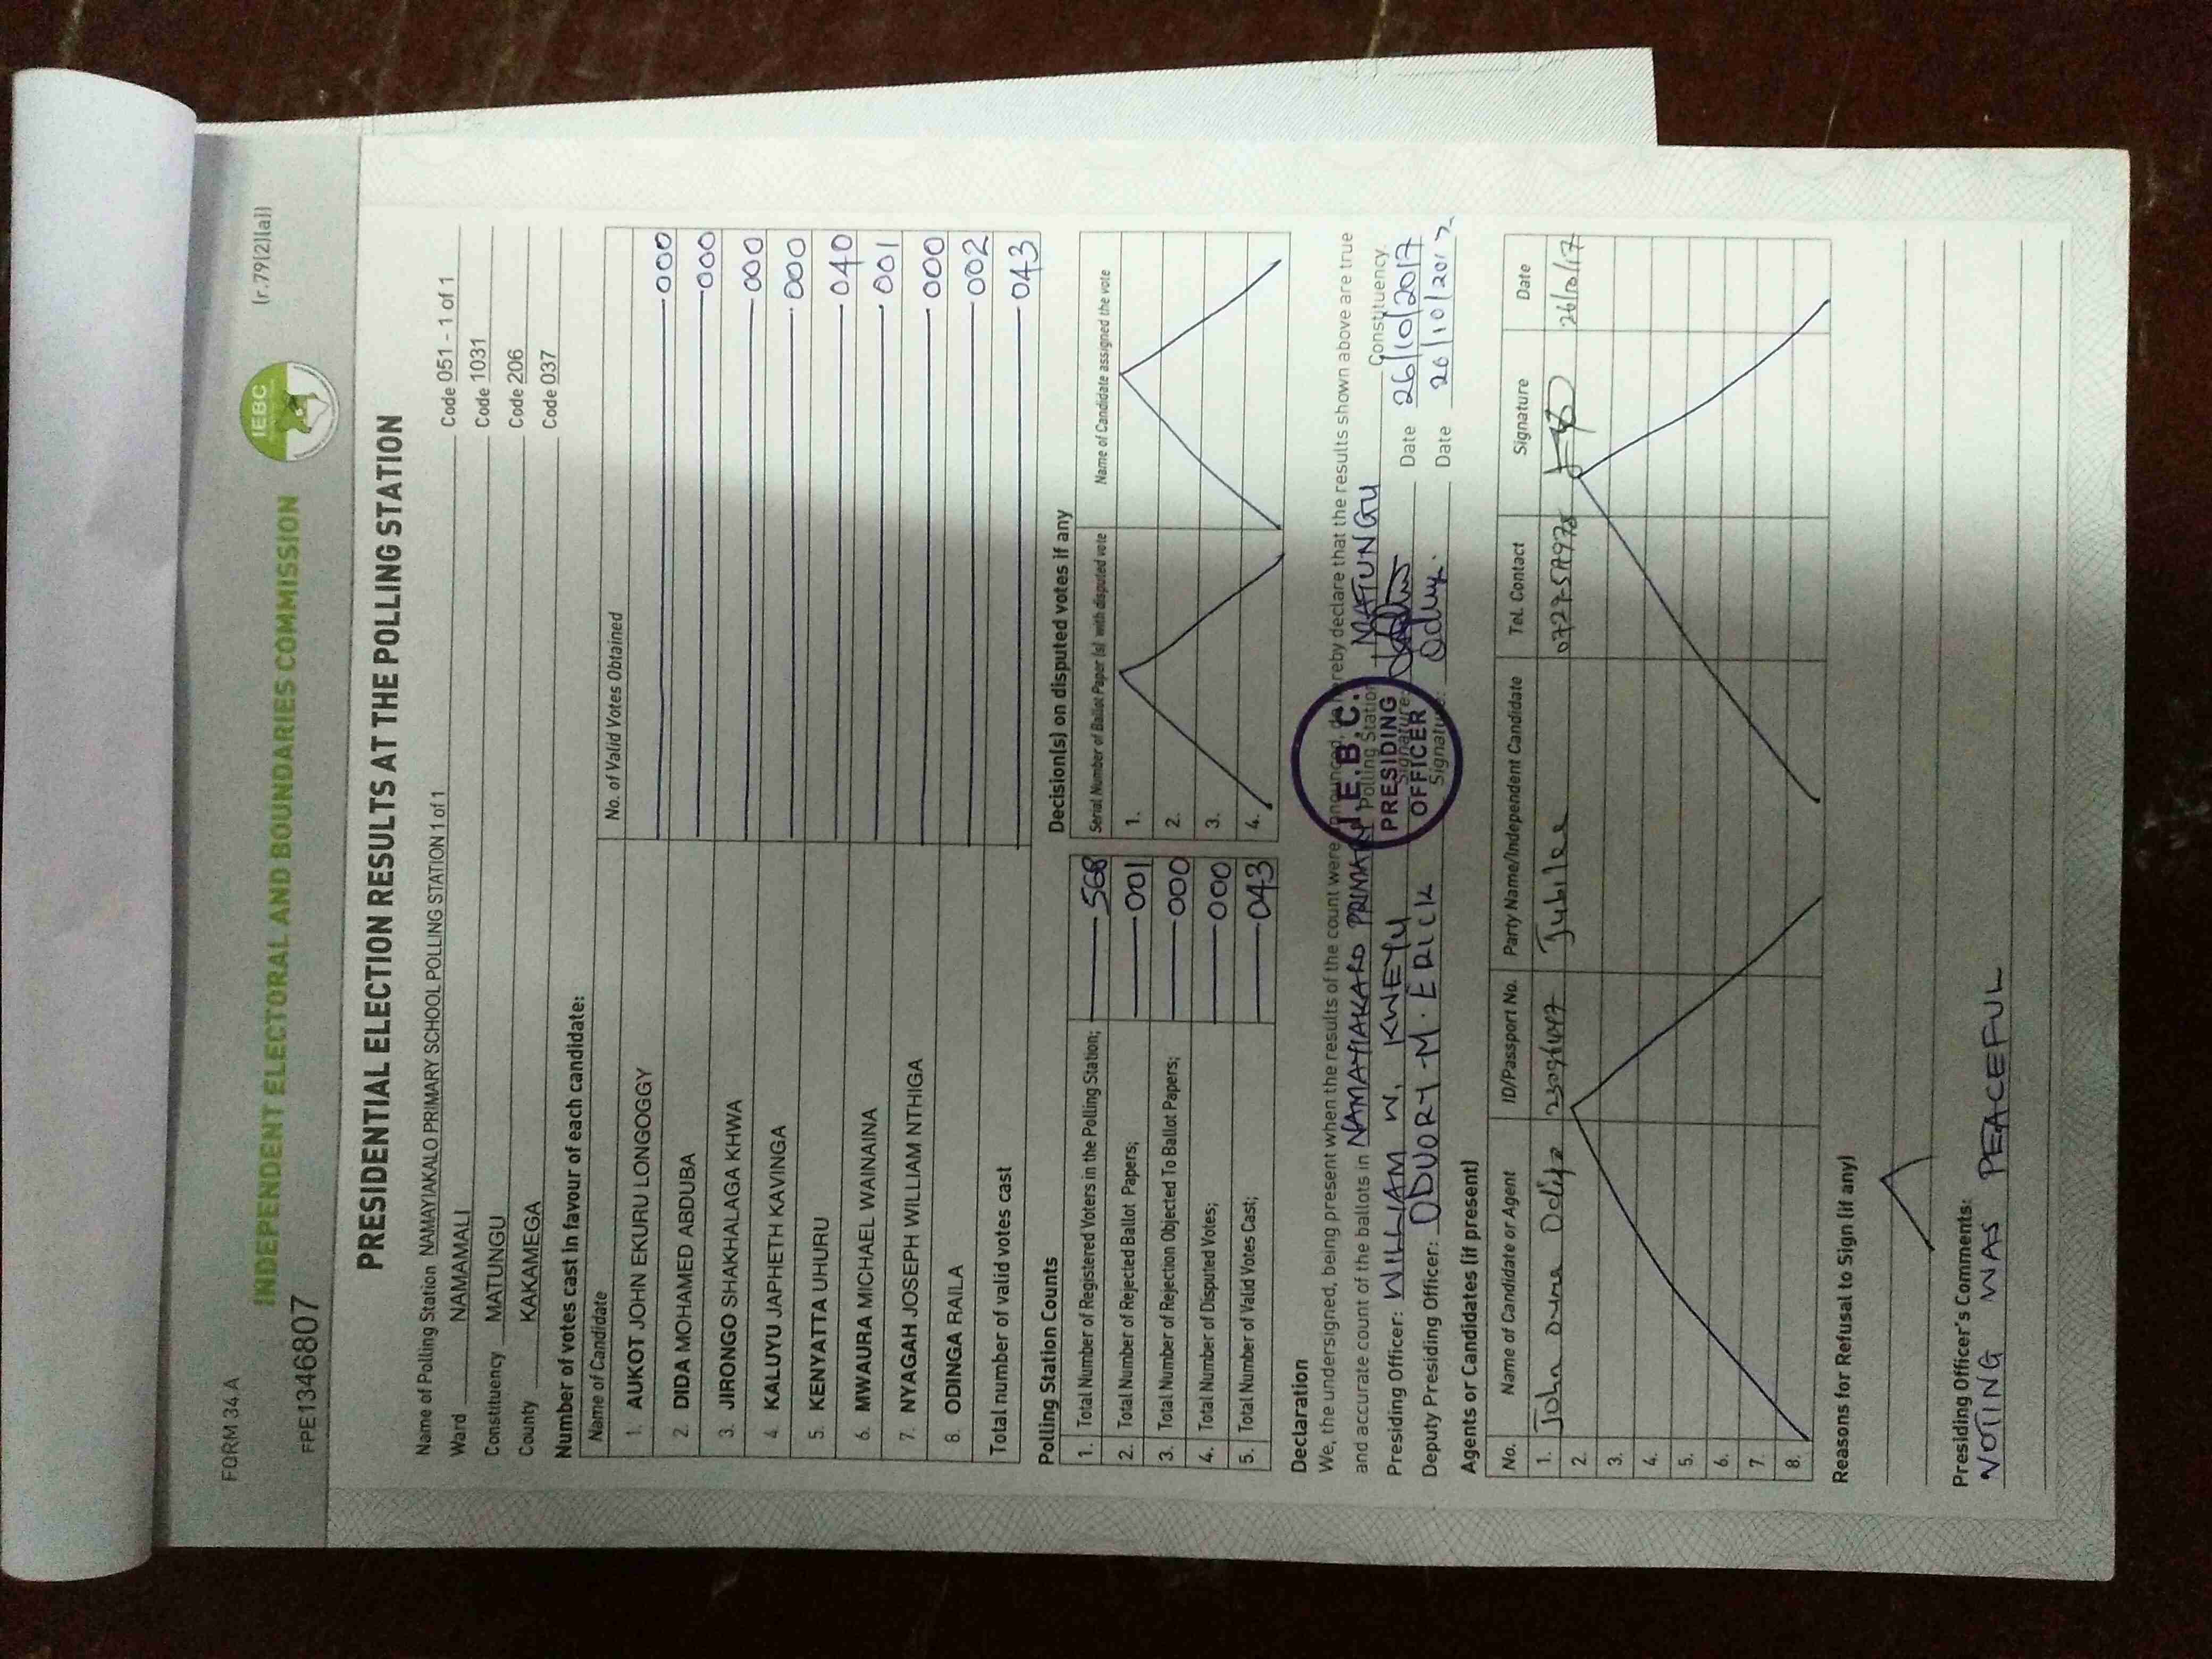 FORM 34 A
INDEPENDENT ELECTORAL AND BOUNDARIES COMMISSION
IEBC
(r.79(2)(a))
FPE1346807
PRESIDENTIAL ELECTION RESULTS AT THE POLLING STATION
Name of Polling Station NAMAYIAKALO PRIMARY SCHOOL POLLING STATION 1 of 1 Code 051 - 1 of 1
Ward NAMAMALI Code 1031
Constituency MATUNGU Code 206
County KAKAMEGA Code 037
Number of votes cast in favour of each candidate:
Name of Candidate No. of Valid Votes Obtained
1. AUKOT JOHN EKURU LONGOGGY 000
2. DIDA MOHAMED ABDUBA 000
3. JIRONGO SHAKHALAGA KHWA 000
4. KALUYU JAPHETH KAVINGA 000
5. KENYATTA UHURU 040
6. MWAURA MICHAEL WAINAINA 001
7. NYAGAH JOSEPH WILLIAM NTHIGA 000
8. ODINGA RAILA 002
Total number of valid votes cast 043
Polling Station Counts
1. Total Number of Registered Voters in the Polling Station; 568
2. Total Number of Rejected Ballot Papers; 001
3. Total Number of Rejection Objected To Ballot Papers; 000
4. Total Number of Disputed Votes; 000
5. Total Number of Valid Votes Cast; 043
Decision(s) on disputed votes if any
Serial Number of Ballot Paper (s) with disputed vote Name of Candidate assigned the vote
1.
2.
3.
4.
Declaration
We, the undersigned, being present when the results of the count were announced, do hereby declare that the results shown above are true
and accurate count of the ballots in NAMAYIAKARO PRIMARY Polling Station MATUNGU Constituency
Presiding Officer: WILLIAM W. KWEYU Signature: Date 26/10/2017
Deputy Presiding Officer: ODUORY M. ERICK Signature: Date 26/10/2017
I.E.B.C.
PRESIDING
OFFICER
Agents or Candidates (if present)
No. Name of Candidate or Agent ID/Passport No. Party Name/Independent Candidate Tel. Contact Signature Date
1. John Ouma Jubilee 26/10/17
2.
3.
4.
5.
6.
7.
8.
Reasons for Refusal to Sign (if any)
Presiding Officer's Comments:
VOTING WAS PEACEFUL